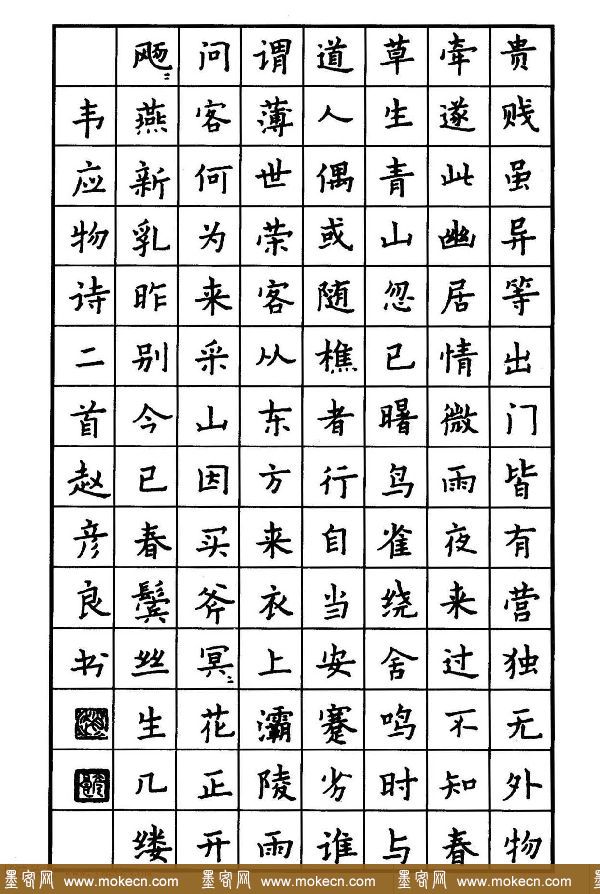 贵贱虽异等出门皆有营独无外物
牵遂此幽居情微雨夜来过不知春
草生青山忽已曙鸟雀绕舍鸣时与
道人偶或随樵者行自当安蹇劣谁
谓薄世荣客从东方来衣上灞陵雨
问客何为来采山因买斧冥〻花正开
飏〻燕新乳昨别今已春鬓丝生几缕
韦应物诗二首赵彦良书
墨客网 www.mokecn.com 墨客网 www.mokecn.com 墨客网 www.mokecn.com